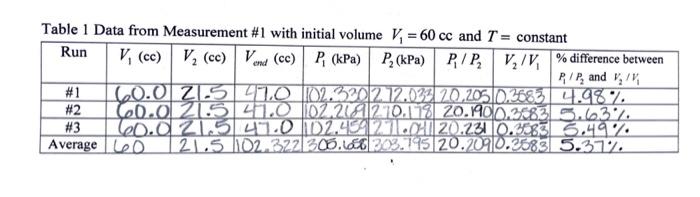 Table 1 Data from Measurement #1 with initial volume V₁ = 60 cc and T = constant
Run V₁ (cc) V₂ (cc) V_end (cc) P₁ (kPa) P₂ (kPa) P₁ / P₂ V₂ / V₁ % difference between P₁ / P₂ and V₂ / V₁
#1 60.0 21.5 47.0 102.330 272.033 20.205 0.3583 4.98%
#2 60.0 21.5 47.0 102.269 270.178 20.190 0.3583 5.63%
#3 60.0 21.5 47.0 102.459 271.041 20.231 0.3583 5.49%
Average 60 21.5 102.322 303.795 20.209 0.3583 5.37%